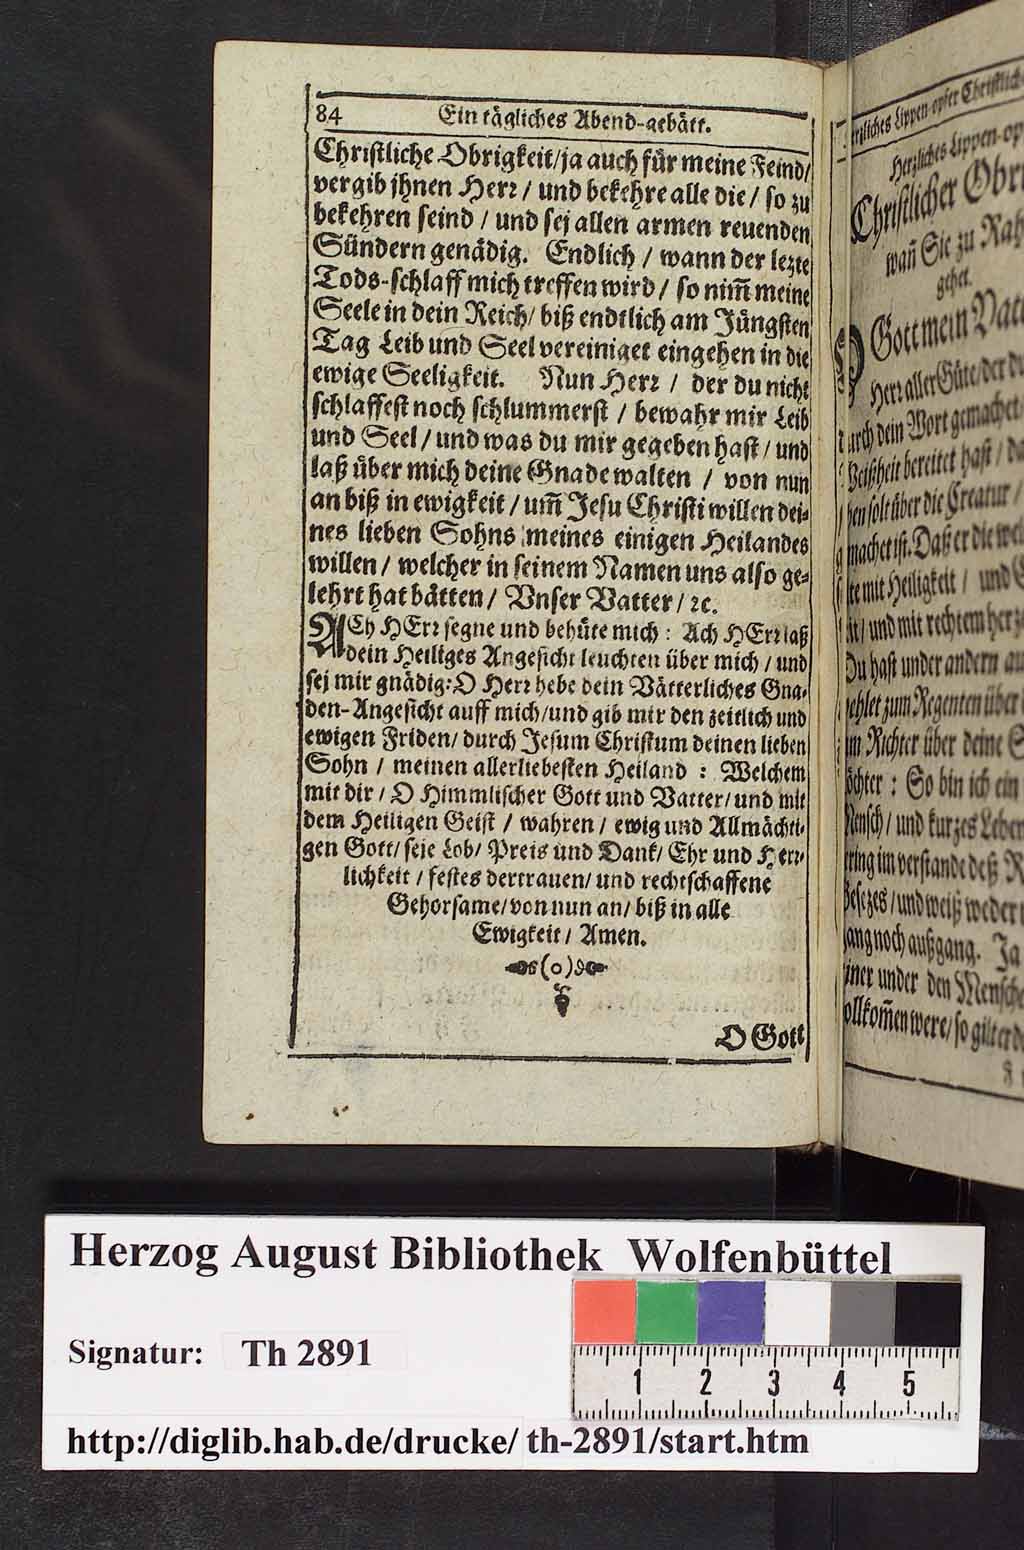 84 Ein tägliches Abend-gebätt.
Christliche Obrigkeit/ja auch für meine Feind/
vergib jhnen Herr / und bekehre alle die / so zu
bekehren seind / und sej allen armen reuenden
Sündern genädig. Endlich / wann der lezte
Tods-schlaff mich treffen wird / so nim̃ meine
Seele in dein Reich/ biß endtlich am Jüngsten
Tag Leib und Seel vereiniget eingehen in die
ewige Seeligkeit. Nun Herr / der du nicht
schlaffest noch schlummerst / bewahr mir Leib
und Seel / und was du mir gegeben hast / und
laß über mich deine Gnade walten / von nun
an biß in ewigkeit / um̃ Jesu Christi willen dei-
nes lieben Sohns meines einigen Heilandes
willen / welcher in seinem Namen uns also ge-
lehrt hat bätten / Vnser Vatter / ꝛc.
ACh HErr segne und behüte mich : Ach HErr laß
dein Heiliges Angesicht leuchten über mich / und
sej mir gnädig: O Herr hebe dein Vätterliches Gna-
den-Angesicht auff mich/und gib mir den zeitlich und
ewigen Friden/ durch Jesum Christum deinen lieben
Sohn / meinen allerliebesten Heiland : Welchem
mit dir / O Himmlischer Gott und Vatter/ und mit
dem Heiligen Geist / wahren / ewig und Allmächti-
gen Gott/ seje Lob/ Preis und Dank/ Ehr und Herr-
lichkeit / festes vertrauen/ und rechtschaffene
Gehorsame/von nun an/ biß in alle
Ewigkeit / Amen.
(o)
O Gott
Herzliches Lippen-op
Christlicher Obri
wañ Sie zu Rah
gehet.
O Gott mein Vatt
Herr aller Güte/der du
dein Wort gemachet
bereitet hast / da
solt über die Creatur /
machet ist. Daß er die wel
mit Heiligkeit / und
und mit rechtem herz
Du hast under andern au
zum Regenten über
Richter über deine S
: So bin ich ein
Mensch/ und kurzes Leben
im verstande deß R
Gesezes / und weiß weder
noch außgang. Ja
einer under den Mensche
vollkom̃en were/ so gilt er
Herzog August Bibliothek Wolfenbüttel
Signatur: Th 2891
1 2 3 4 5
http://diglib.hab.de/drucke/ th-2891/start.htm